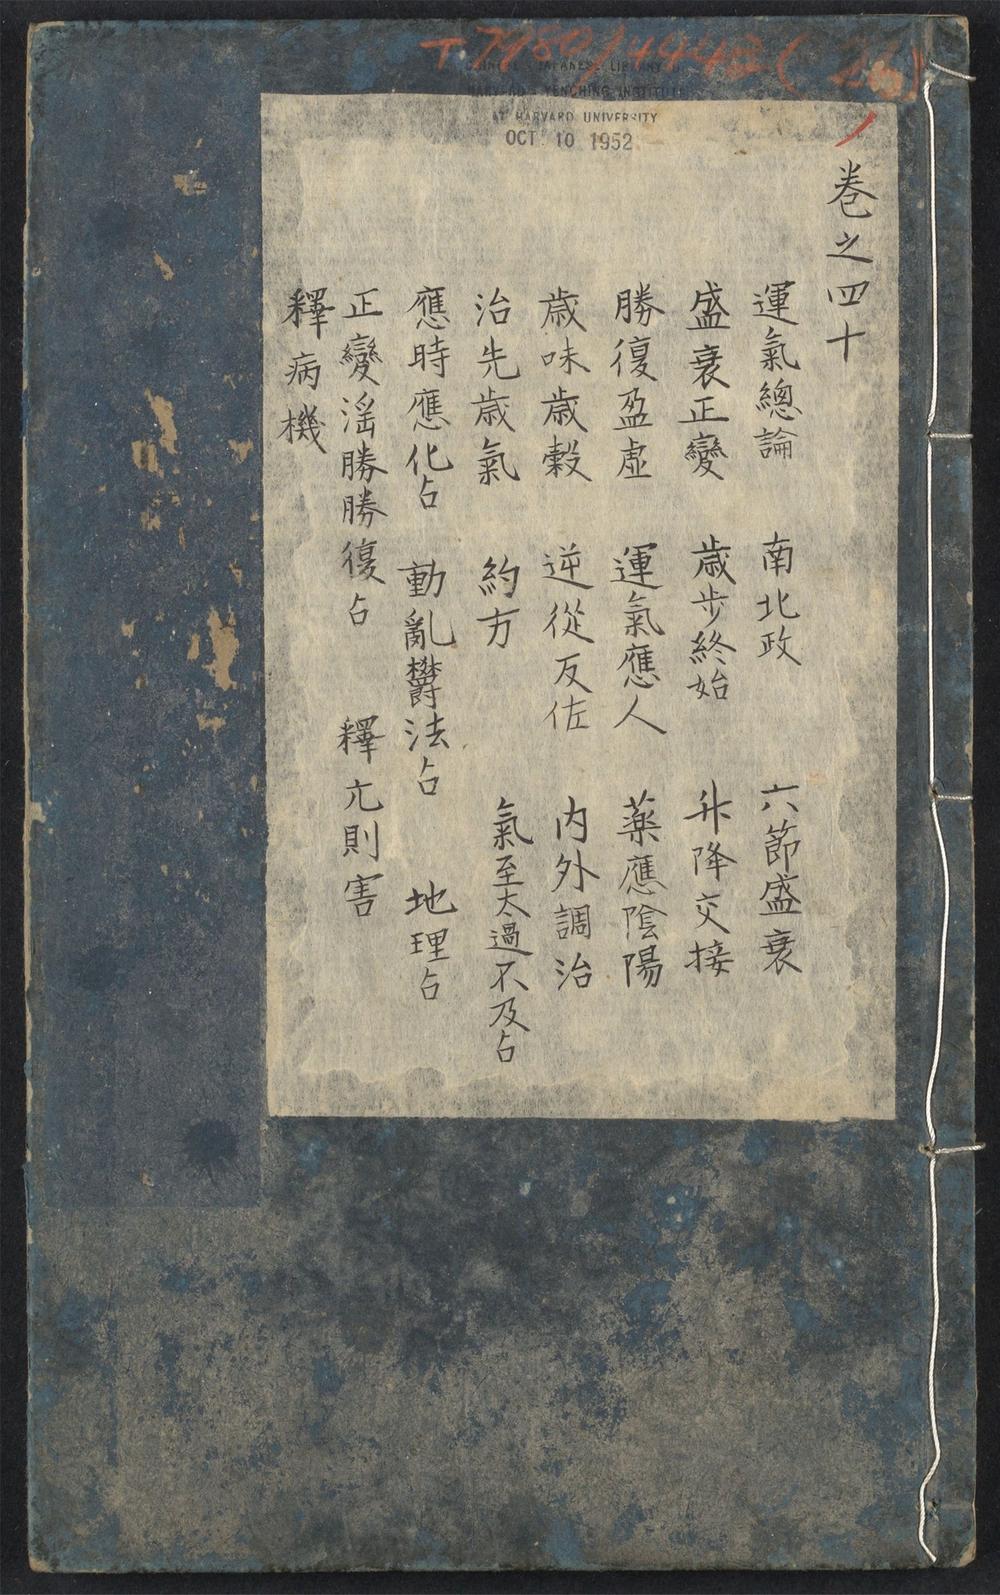 T 7980/4442 (26)
CHINESE-JAPANESE LIBRARY
HARVARD-YENCHING INSTITUTE
AT HARVARD UNIVERSITY
OCT 10 1952
卷之四十
運氣總論 南北政 六節盛衰
盛衰正變 歲步終始 升降交接
勝復盈虛 運氣應人 藥應陰陽
歲味歲穀 逆從反佐 內外調治
治先歲氣 約方 氣至太過不及占
應時應化占 動亂欝法占 地理占
正變淫勝勝復占 釋亢則害
釋病機